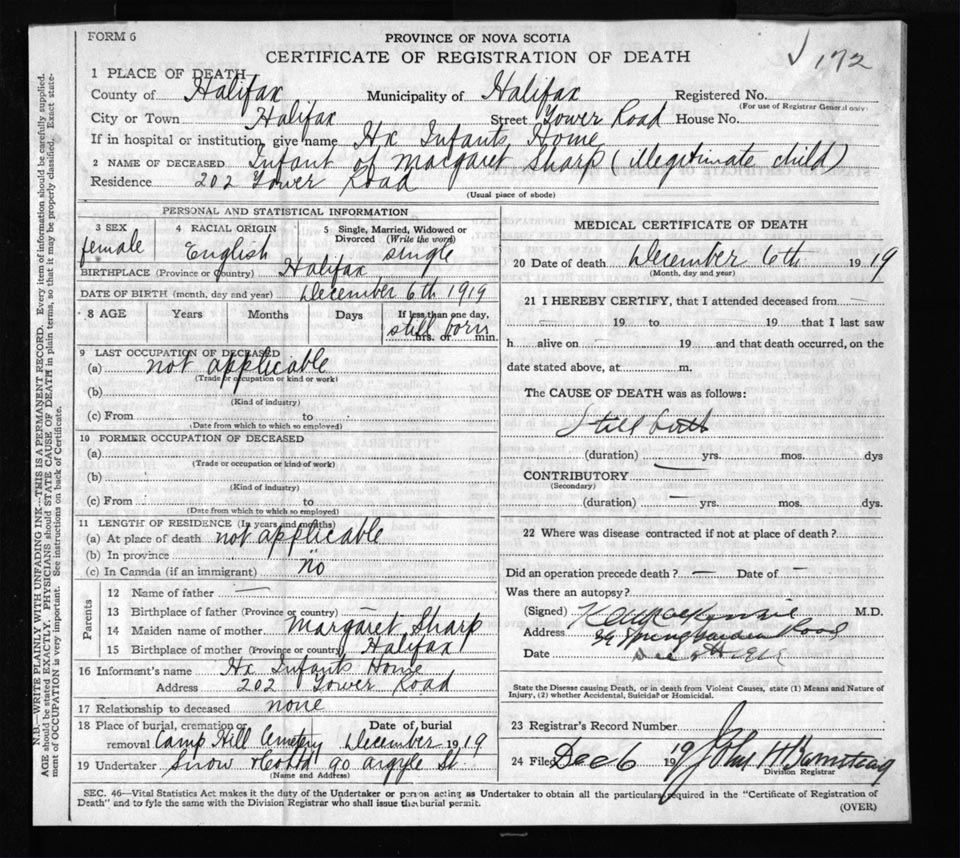 FORM 6
PROVINCE OF NOVA SCOTIA
CERTIFICATE OF REGISTRATION OF DEATH
√ 172
1 PLACE OF DEATH—
County of Halifax Municipality of Halifax Registered No.
(For use of Registrar General only)
City or Town Halifax Street Tower Road House No.
If in hospital or institution, give name Hx Infants Home
2 NAME OF DECEASED Infant of Margaret Sharp (illegitimate child)
Residence 202 Tower Road
(Usual place of abode)
PERSONAL AND STATISTICAL INFORMATION
3 SEX 4 RACIAL ORIGIN 5 Single, Married, Widowed or Divorced (Write the word)
female English single
BIRTHPLACE (Province or Country) Halifax
DATE OF BIRTH (month, day and year) December 6th 1919
8 AGE Years Months Days If less than one day,
still born
hrs. or min.
9 LAST OCCUPATION OF DECEASED
(a) not applicable
(Trade or occupation or kind or work)
(b)
(Kind of industry)
(c) From to
(Date from which to which so employed)
10 FORMER OCCUPATION OF DECEASED
(a)
(Trade or occupation or kind of work)
(b)
(Kind of industry)
(c) From to
(Date from which to which so employed)
11 LENGTH OF RESIDENCE (In years and months)
(a) At place of death not applicable
(b) In province
(c) In Canada (if an immigrant) "
Parents
12 Name of father —
13 Birthplace of father (Province or country) —
14 Maiden name of mother Margaret Sharp
15 Birthplace of mother (Province or country) Halifax
16 Informant's name Hx Infants Home
Address 202 Tower Road
17 Relationship to deceased none
18 Place of burial, cremation or removal Camp Hill Cemetery Date of burial December 1919
19 Undertaker Snow & Co Ltd 90 Argyle St
(Name and Address)
MEDICAL CERTIFICATE OF DEATH
20 Date of death December 6th 1919
(Month, day and year)
21 I HEREBY CERTIFY, that I attended deceased from —
— 19 to — 19 that I last saw
h alive on — 19 and that death occurred, on the
date stated above, at m.
The CAUSE OF DEATH was as follows:
Still birth
(duration) — yrs. mos. dys
CONTRIBUTORY
(Secondary)
(duration) — yrs. mos. dys.
22 Where was disease contracted if not at place of death?
Did an operation precede death? — Date of —
Was there an autopsy?
(Signed) M.D.
Address Spring Garden Road
Date Dec
State the Disease causing Death, or in death from Violent Causes, state (1) Means and Nature of
Injury, (2) whether Accidental, Suicidal or Homicidal.
23 Registrar's Record Number
24 Filed Dec 6 19 John H Barnstead
Division Registrar
SEC. 46—Vital Statistics Act makes it the duty of the Undertaker or person acting as Undertaker to obtain all the particulars required in the "Certificate of Registration of
Death" and to fyle the same with the Division Registrar who shall issue the burial permit.
(OVER)
N.B.—WRITE PLAINLY WITH UNFADING INK—THIS IS A PERMANENT RECORD. Every item of information should be carefully supplied.
AGE should be stated EXACTLY. PHYSICIANS should STATE CAUSE OF DEATH in plain terms, so that it may be properly classified. Exact state-
ment of OCCUPATION is very important. See instructions on back of Certificate.